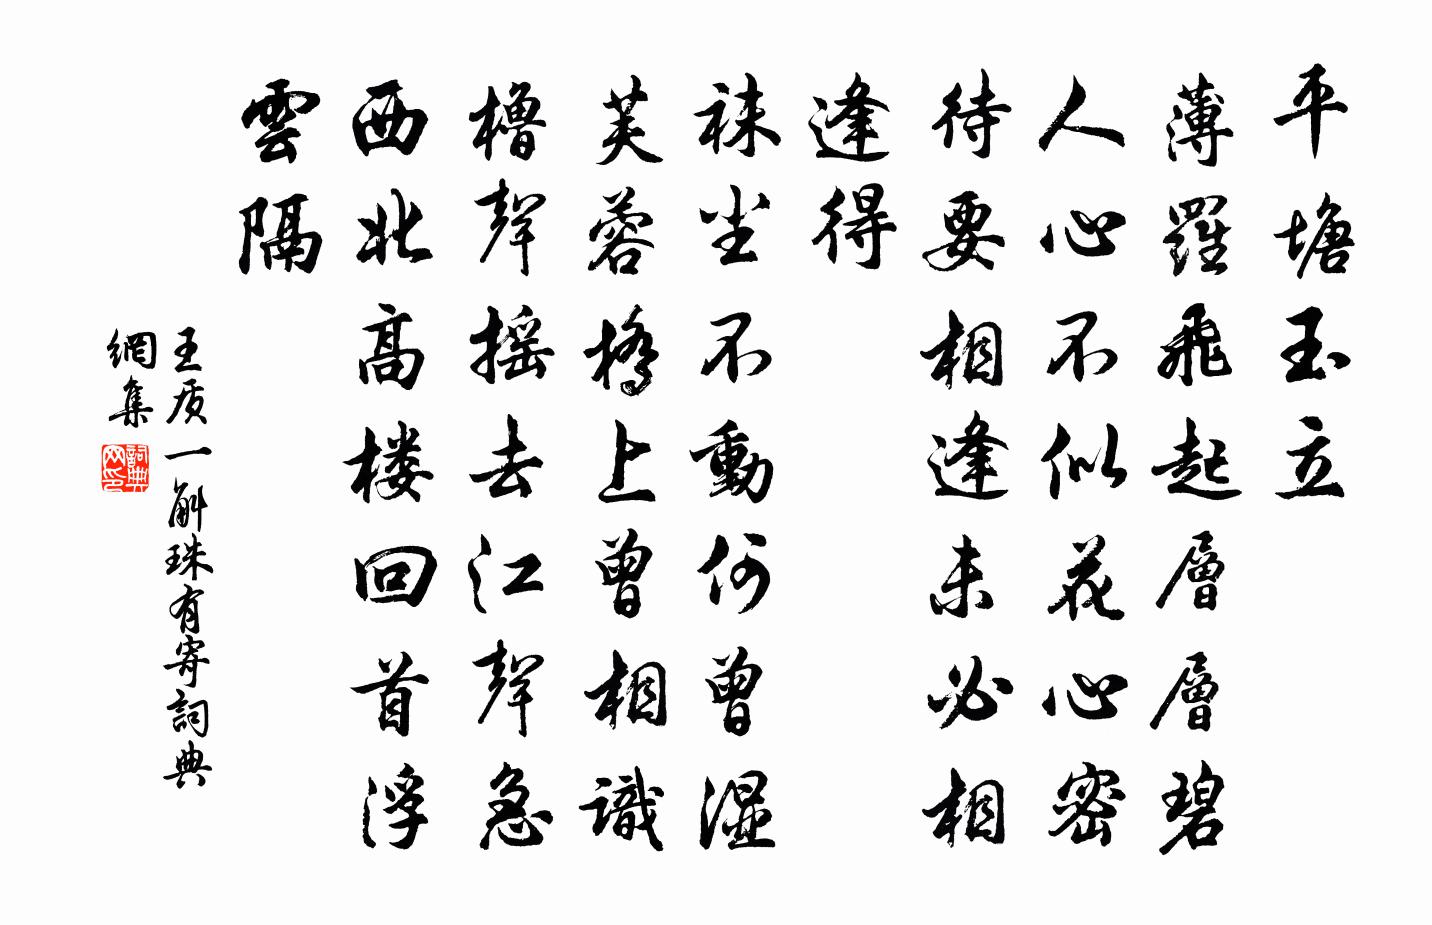 平塘玉立
薄羅飛起層層碧
人心不似花心密
待要相逢未必相
逢得
袜尘不動何曾湿
芙蓉橋上曾相識
櫓聲摇去江聲急
西北高楼回首浮
雲隔
王质一斛珠有寄詞典
網集
詞典
网印